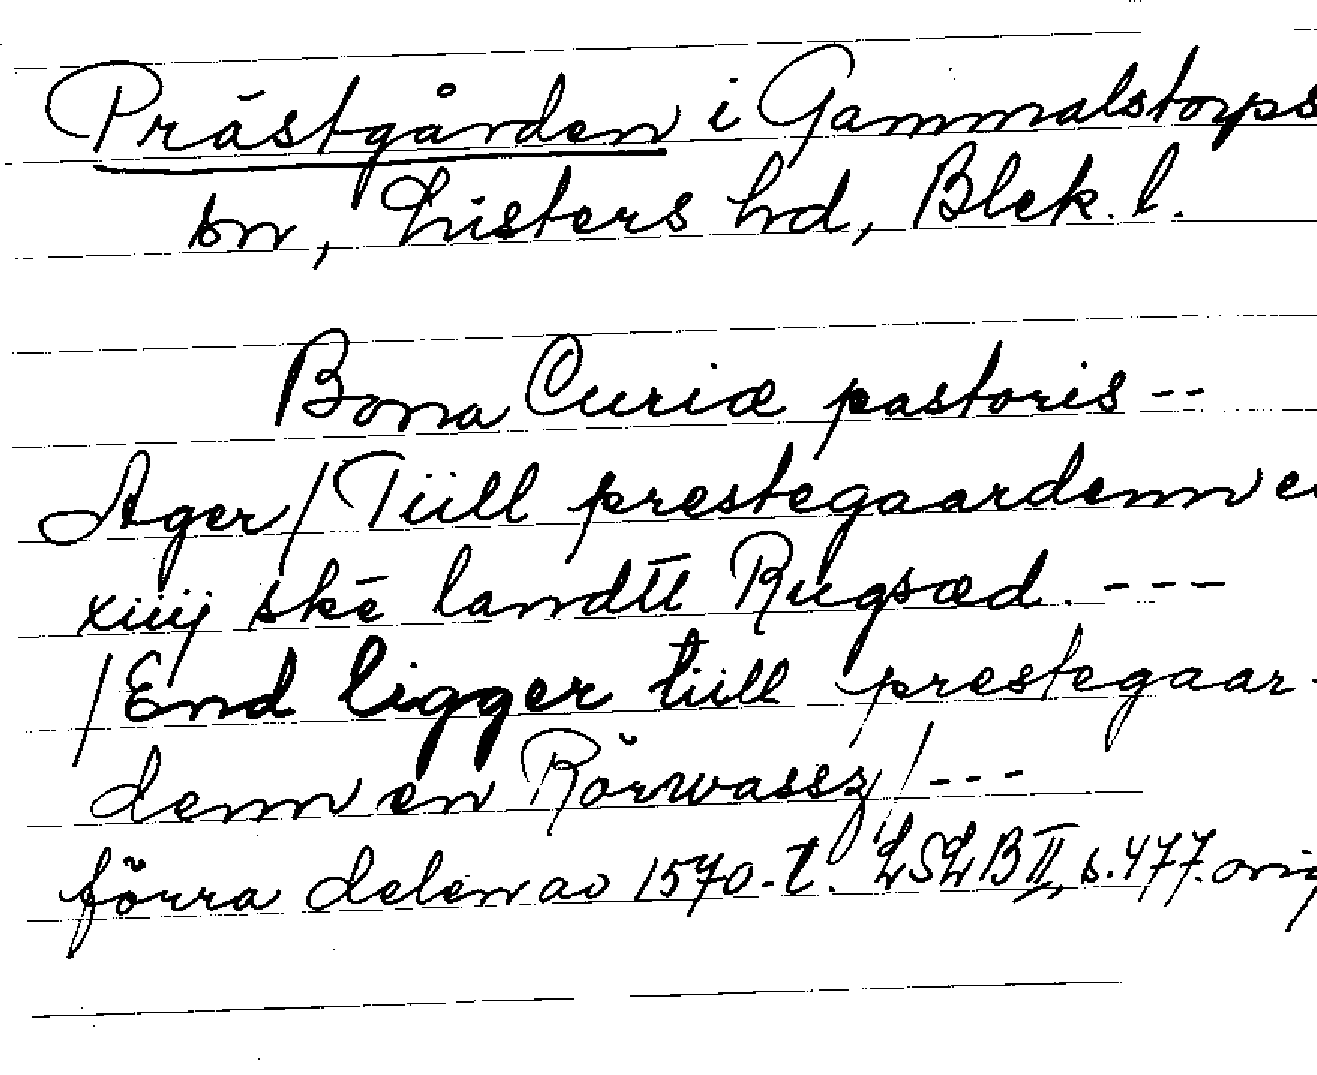 Prästgården i Gammalstorps
sn, Listers hd, Blek. l.
Bona Curiæ pastoris --
Ager / Tiill prestegaardenn
xiiij skē landtt Rugsæd. ---
/ End ligger tiill prestegaar-
denn en Rörwassz / ---
förra delen av 1570-t. LSLB II, s. 477. orig